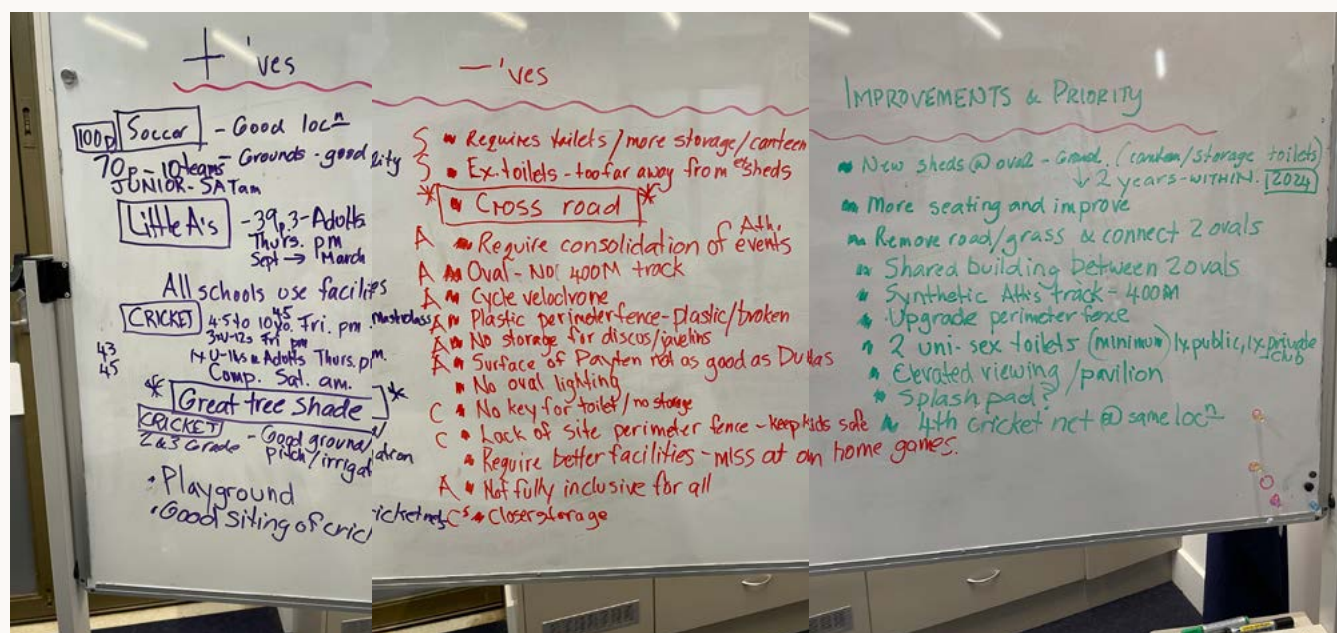 +'ves
100p Soccer - Good locn
70p - 10 teams - Grounds - good
JUNIOR - SAT am
Little A's - 39p, 3 - Adults
Thurs. pm
Sept → March
All schools use facilities
CRICKET 4.5 to 10yo. Fri. pm. Masterclass
45
3xU-12s Fri pm
43
45
U-16s Adults Thurs. pm.
Comp. Sat. am.
* Great tree shade *
CRICKET
2 & 3 Grade - Good ground/
pitch/irrigation
• Playground
• Good siting of cricket nets
-'ves
S Requires toilets/more storage/canteen
S Ex. toilets - too far away from ex sheds
* Cross road *
A Require consolidation of Ath. events
A Oval - NOT 400M track
A Cycle velodrome
A Plastic perimeter fence - plastic/broken
A No storage for discos/javelins
A Surface of Payten not as good as Dundas
No oval lighting
C No key for toilet/no storage
C Lack of site perimeter fence - keep kids safe
Require better facilities - miss at on home games.
A Not fully inclusive for all
Cs Closer storage
IMPROVEMENTS & PRIORITY
New sheds @ oval - Ground. (canteen/storage toilets)
↓ 2 years - WITHIN. 2024
More seating and improve
Remove road/grass & connect 2 ovals
Shared building between 2 ovals
Synthetic Ath's track - 400M
Upgrade perimeter fence
2 uni-sex toilets (minimum) 1x public, 1x private
club
Elevated viewing/pavilion
Splash pad?
4th cricket net @ same locn